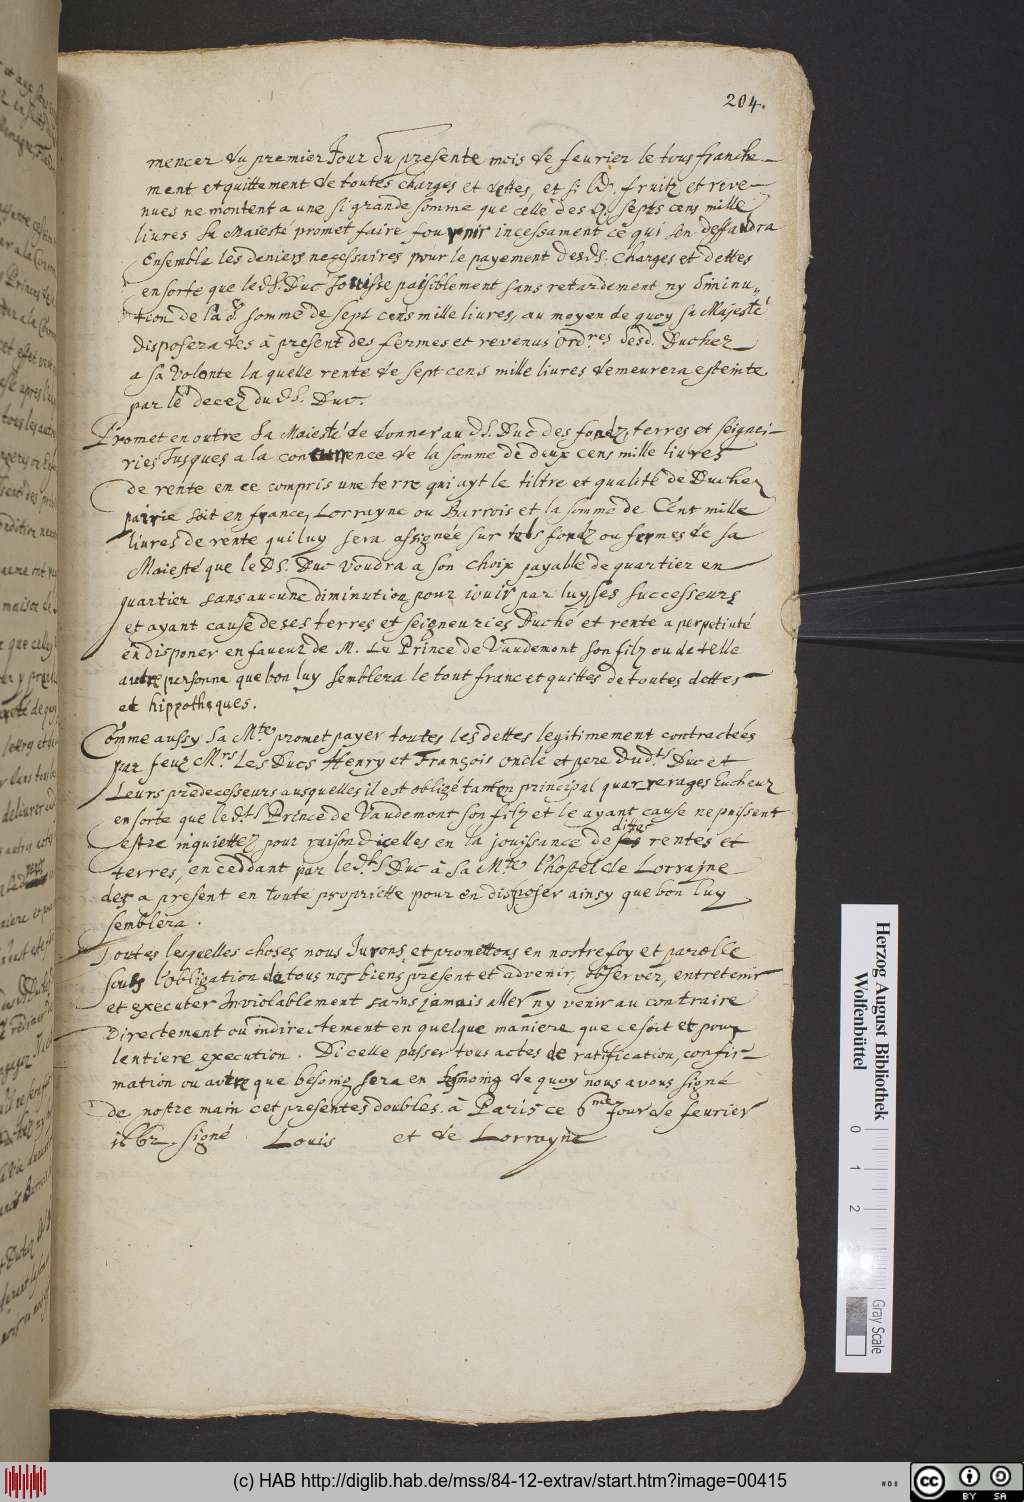 204.
mencer du premier Jour du presente mois de feurier le tous franche-
ment et quittement de toutes charges et dettes, et si lesd. fruitz et reve-
nues ne montent a une si grande somme que celle des d. septs cens mille
liures Sa Maiesté promet faire fournir incessament ce qui s'en deffaudra
Ensemble les deniers necessaires pour le payement desd. Charges et dettes
en sorte que led. S. Duc Jouisse paisiblement sans retardement ny diminu-
tion de lad. somme de sept cens mille liures, au moyen de quoy sa Majesté
disposera des à present des fermes et revenus ord.res desd. Duchez
a sa Volonte la quelle rente de sept cens mille liures demeurera esteinte
par le decez dud. S. Duc.
Promet en outre Sa Maiesté de donner aud. S. Duc des fondz, terres et seigneu-
ries Jusques a la concurrence de la somme de deux cens mille liures
de rente en ce compris une terre qui ayt le tiltre et qualité de Duche
pairie soit en france, Lorrayne ou Barrois et la somme de Cent mille
liures de rente qui luy sera assignée sur tels fondz ou fermes de sa
Maiesté que le d S. Duc voudra a son choix payable de quartier en
quartier sans aucune diminution pour iouir par luy, ses successeurs
et ayant cause de ses terres et seigneuries Duché et rente a perpetiuté
en disponer en faueur de M. Le Prince de Vaudemont son filz ou de telle
autre personne que bon luy semblera le tout franc et quittes de toutes dettes
et hippotheques.
Comme aussy Sa M.te promet payer toutes les dettes legitimement contractées
par feuz M.rs Les Ducs Henry et François oncle et pere dud. S. Duc et
Leurs predecesseurs ausquelles il est obligé tant en principal qu'arrerages Eucheuz
en sorte que led. S. Prince de Vaudemont son filz et le ayant cause ne puissent
estre inquiettez pour raison d'icelles en la jouissance de ses dittes rentes et
terres, en ceddant par led. S. Duc à Sa M.te l'hostel de Lorraine
des a present en toute propriette pour en disposer ainsy que bon luy
semblera.
Toutes lesquelles choses nous Jurons et promettons en nostre foy et parolle
soubs l'obligation de tous nos biens present et advenir, observer, entretenir
et executer Inviolablement sans jamais aller ny venir au contraire
Directement ou indirectement en quelque maniere que ce soit et pour
lentiere execution. Dicelle passer tous actes de ratification, confir-
mation ou autre que besoing sera en tesmoing de quoy nous avons signé
de nostre main cet presentes doubles. à Paris ce 6.me Jour de feurier
1662. signé Louis et de Lorrayne
Herzog August Bibliothek
Wolfenbüttel
0 1 2
Gray Scale
(c) HAB http://diglib.hab.de/mss/84-12-extrav/start.htm?image=00415
cc BY SA